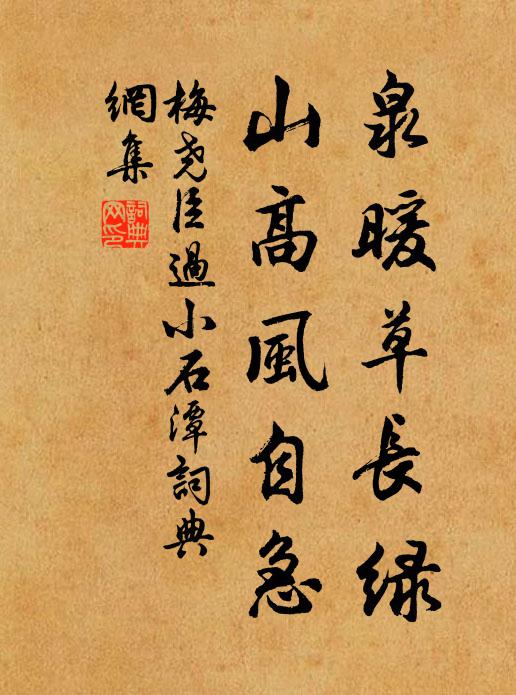 泉暖草長緑
山高風自急
梅尧臣過小石潭詞典
網集
詞典
网印